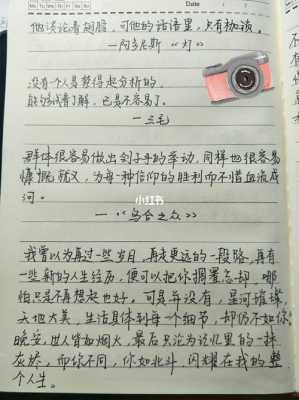 Mo Tu We Th Fr Sa Su
Date
他谈论着翅膀，可他的话语里，只有枷锁。
—阿多尼斯《灯》
没有个人是禁得起分析的，
能够试着了解，已是不容易了。
—三毛
小红书
群体很容易做出刽子手的举动，同样也很容易
慷慨就义，为每一种信仰的胜利而不惜血流成
河。
—《乌合之众》
我曾以为再过一些岁月，再走更远的一段路，再有
一些新的人生经历，便可以把你搁置忘却，哪
怕只是不再想起也好。可是并没有，星河璀璨
天地大美，生活具体到每一个细节，却仍不如你。
晚安，世人皆如烟火，最后只沦为记忆里的一抹
灰烬，而你不同，你如北斗，闪耀在我的整
个人生。